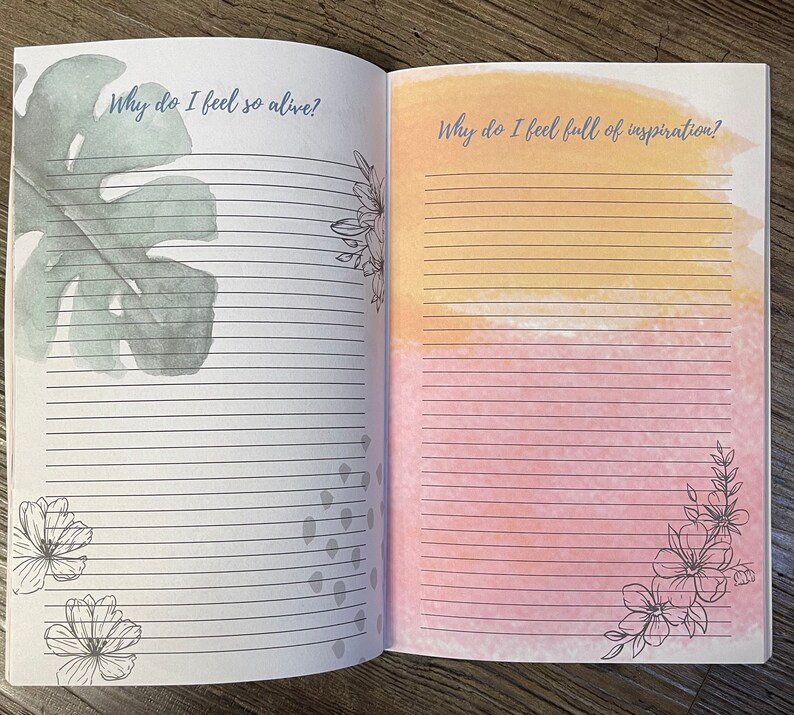 Why do I feel so alive?
Why do I feel full of inspiration?